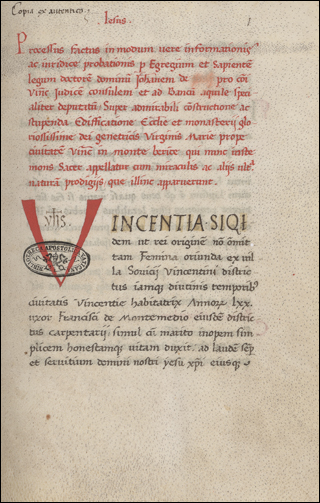 Copia ex autentico
Iesus. 1
Processus factus in modum uere informationis
ac iuridice probationis p Egregium et Sapiente
legum doctore dominu Iohanem de pro coi
Vinc Iudice consulem et ad banci aquile speci
aliter deputatu: Super admirabili costrructione ac
stupenda Edificatione Ecclie et monasterij glo
riosissime dei genetricis Virginis Marie prope
ciuitate Vinc in monte berice qui nunc inste
mons Sacer appellatur cum miraculis ac alijs
natura prodigijs que illinc apparuerunt.
yhs
VINCENTIA·SIQI
dem ut rei origine no omit
tam Femina oriunda ex uil
la Souicij Vincentini distric
tus iamqi diutinis temporib
ciuitatis Vincentie habitatrix Annorum lxx
uxor Francisci de Montemedio eiusde distric
tus carpentarij simul cu marito inopem sim
plicem honestamqi uitam duxit. ad laude sep
et seruitium domini nostri yesu xpi eiusqi